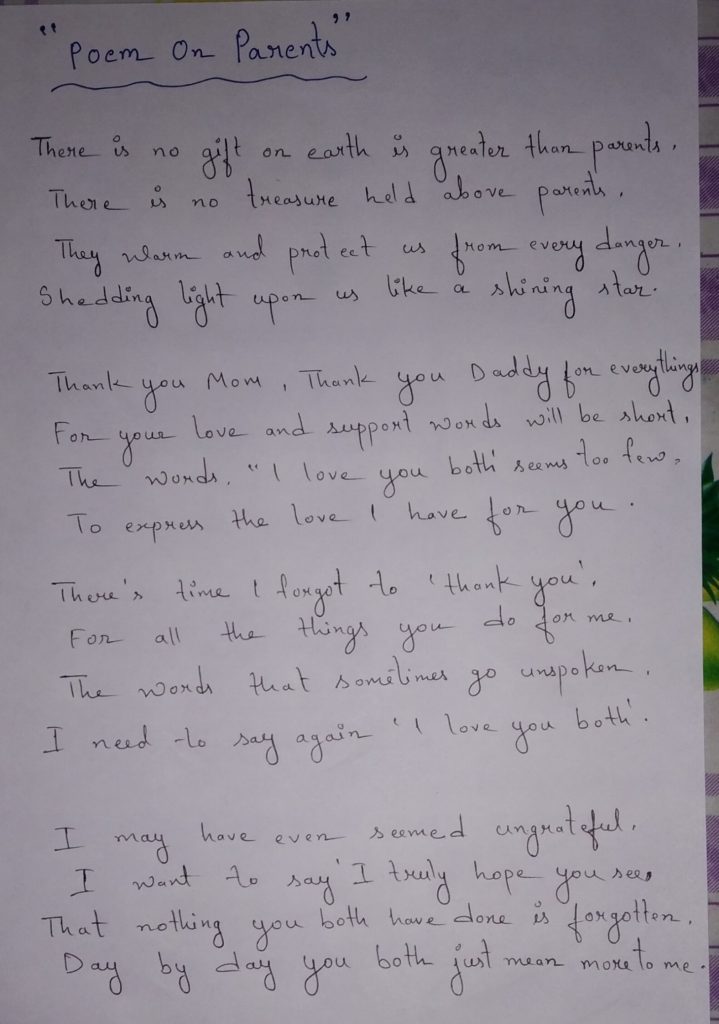 "Poem On Parents"
There is no gift on earth is greater than parents,
There is no treasure held above parents,
They warm and protect us from every danger,
Shedding light upon us like a shining star.
Thank you Mom, Thank you Daddy for everythings
For your love and support words will be short,
The words, "I love you both' seems too few,
To express the love I have for you.
There's time I forgot to 'thank you',
For all the things you do for me,
The words that sometimes go unspoken,
I need to say again 'I love you both'.
I may have even seemed ungrateful,
I want to say' I truly hope you see,
That nothing you both have done is forgotten,
Day by day you both just mean more to me.